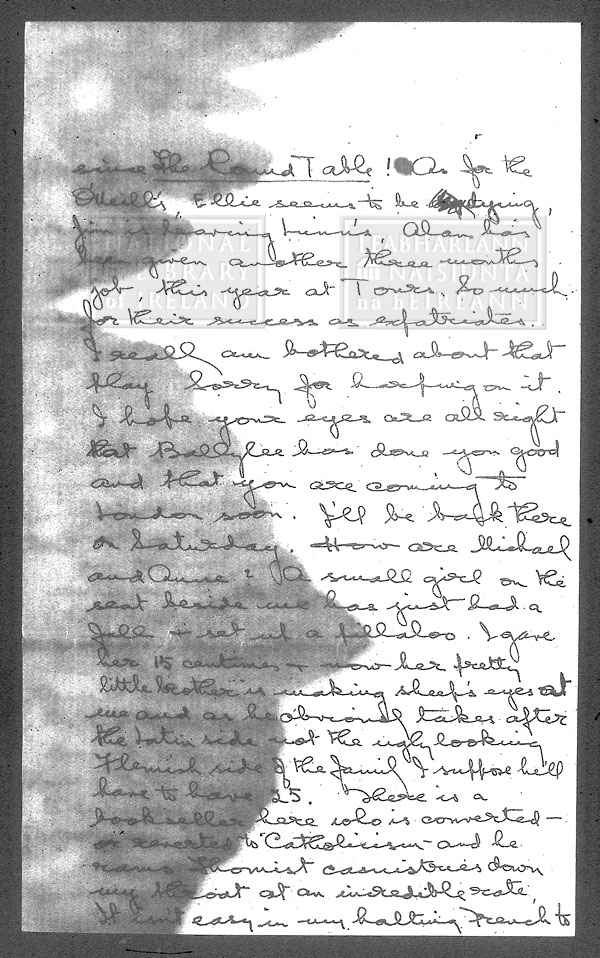 since The Round Table! As for the
O'Neill's Ellie seems to be dying,
Jim is leaving Linn's, Alan has
been given another three months
job, this year at Tours. So much
for their success as expatriates.
I really am bothered about that
play. Sorry for harping on it.
I hope your eyes are all right
that Ballylee has done you good
and that you are coming to
London soon. I'll be back there
on Saturday. How are Michael
and Anne? A small girl on the
seat beside me has just had a
fall & set up a pillaloo. I gave
her 15 centimes & now her pretty
little brother is making sheep's eyes at
me and as he obviously takes after
the Latin side not the ugly looking
Flemish side of the family I suppose he'll
have to have 25. There is a
bookseller here who is converted -
or reverted to Catholicism - and he
rams Thomist casuistries down
my throat at an incredible rate.
It isn't easy in my halting French to
NATIONAL LIBRARY of IRELAND
LEABHARLANN NÁISIÚNTA na hÉIREANN